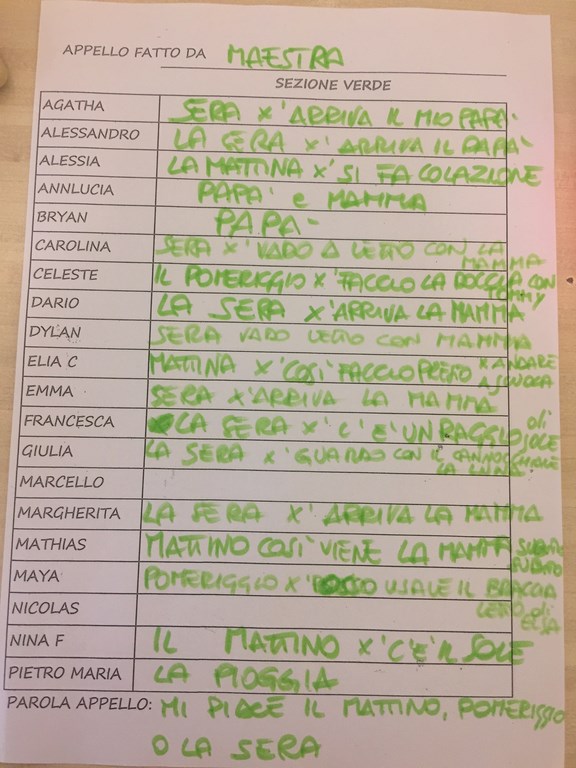 APPELLO FATTO DA MAESTRA
SEZIONE VERDE
AGATHA SERA X' ARRIVA IL MIO PAPA'
ALESSANDRO LA SERA X' ARRIVA IL PAPA'
ALESSIA LA MATTINA X' SI FA COLAZIONE
ANNLUCIA PAPA' e MAMMA
BRYAN PAPA-
CAROLINA SERA X' VADO A LETTO CON LA
MAMMA
CELESTE IL POMERIGGIO X' FACCIO LA DOCCIA CON
DARIO LA SERA X' ARRIVA LA MAMMA
DYLAN SERA VADO LETTO CON MAMMA
ELIA C MATTINA X' COSI' FACCIO PRESTO X ANDARE
A SCUOLA
EMMA SERA X' ARRIVA LA MAMMA
FRANCESCA LA SERA X' C'E' UN RAGGIO di
SOLE
GIULIA LA SERA X' GUARDO CON IL CANNOCCHIALE
LA LUNA
MARCELLO
MARGHERITA LA SERA X' ARRIVA LA MAMMA
MATHIAS MATTINO COSI' VIENE LA MAMMA SUBITO
SUBITO
MAYA POMERIGGIO X' POSSO USALE IL BRACCIA
LETTO di
ELSA
NICOLAS
NINA F IL MATTINO X' C'E' IL SOLE
PIETRO MARIA LA PIOGGIA
PAROLA APPELLO: MI PIACE IL MATTINO, POMERIGGIO
O LA SERA